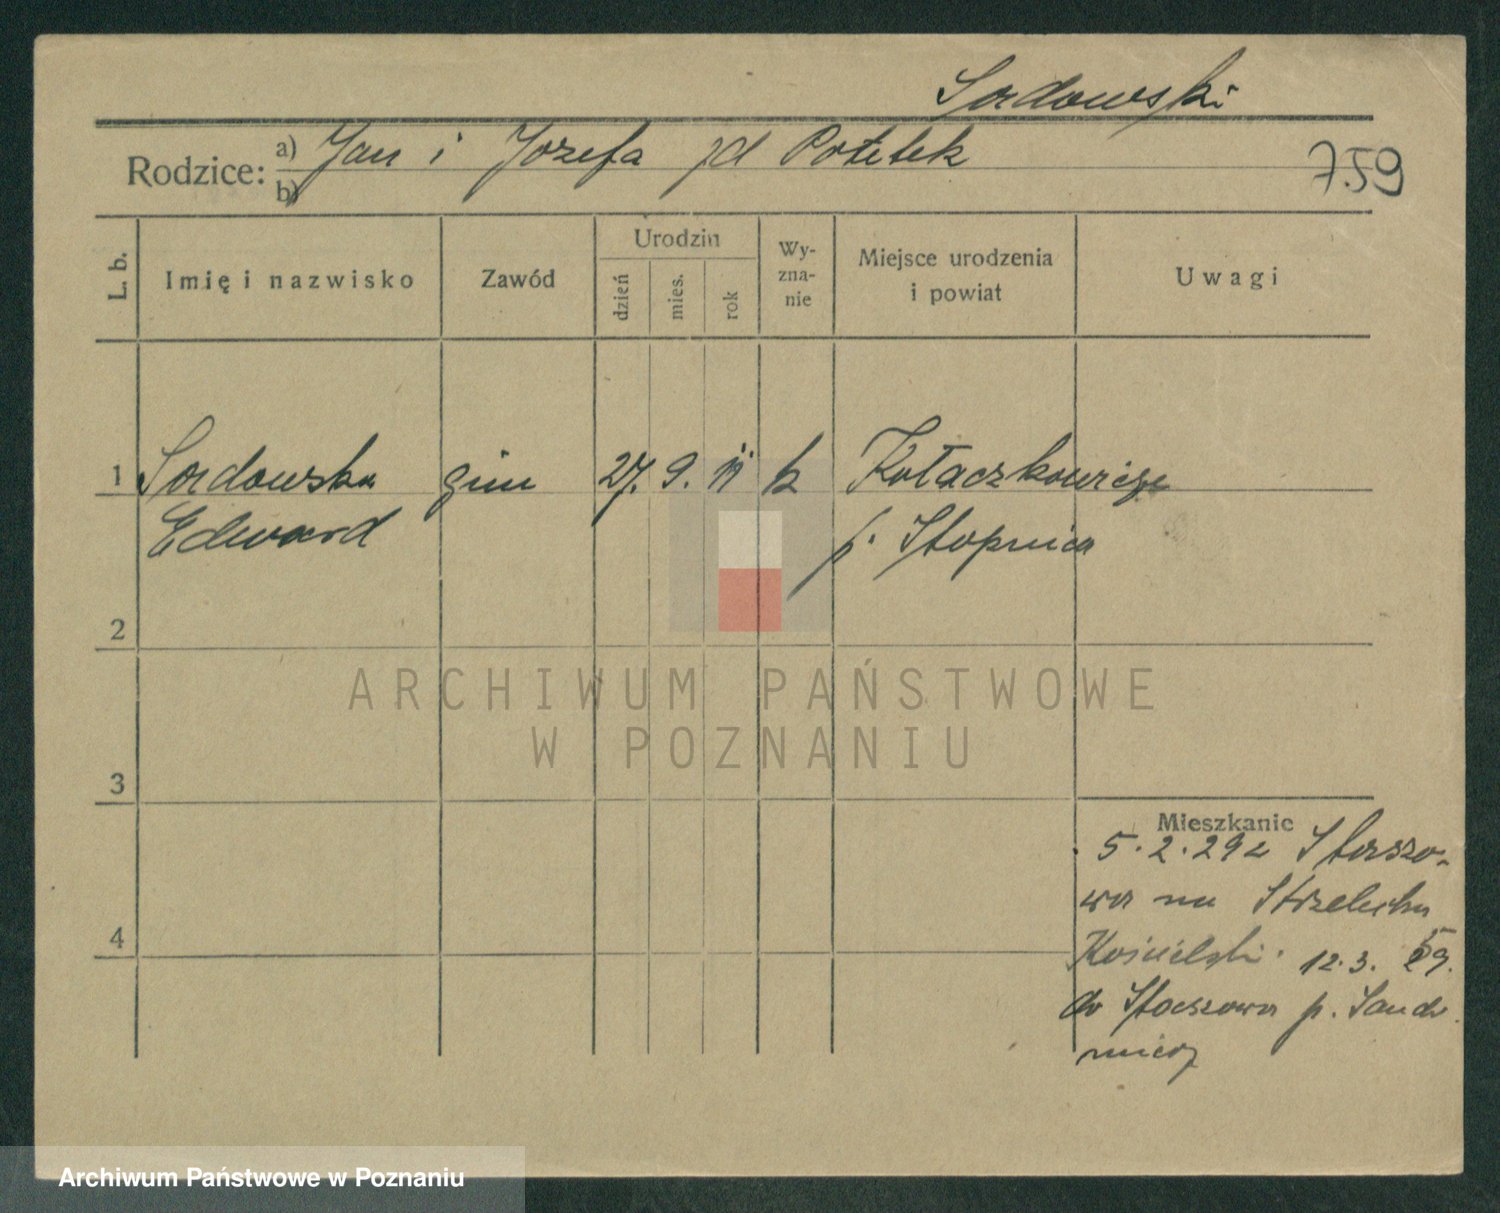 Sadowski
Rodzice: a) Jan i Józefa zd Potetek
b)
759
L. b.
Imię i nazwisko
Zawód
Urodzin
dzień
mies.
rok
Wy-
zna-
nie
Miejsce urodzenia
i powiat
Uwagi
1 Sadowska gim 27. 9. 11 k Kołaczkowice
Edward p. Stopnica
2
ARCHIWUM PAŃSTWOWE
W POZNANIU
3
Mieszkanie
5.2.29 z Staszo-
wa na
4
12.3. 29.
do Staszowa p. Sando
mierz
Archiwum Państwowe w Poznaniu